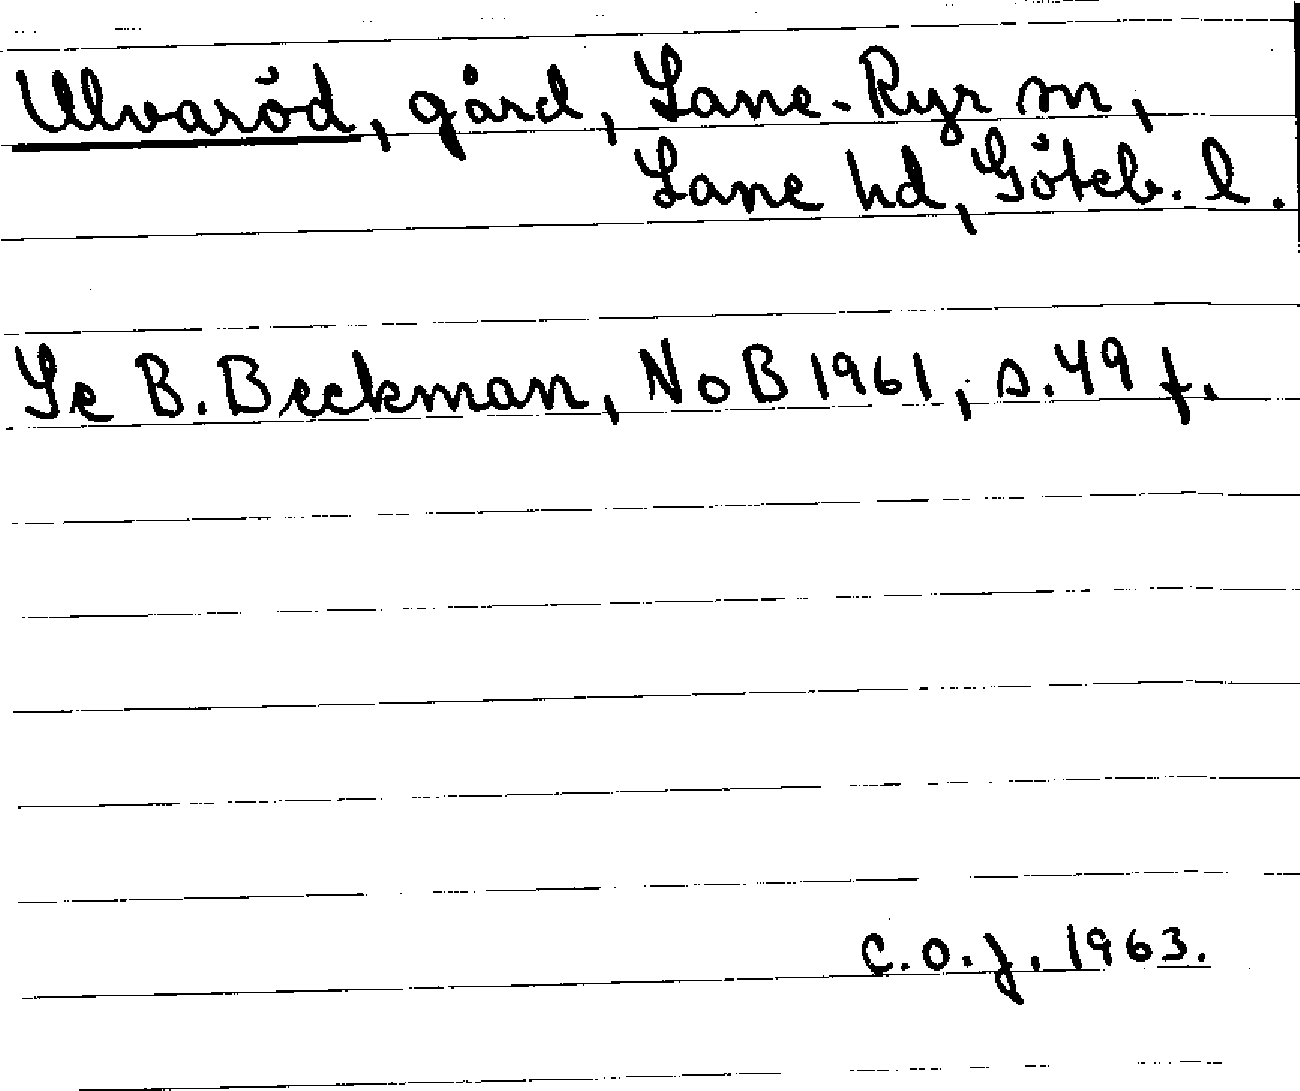 Ulvaröd, gård, Lane-Ryr sn,
Lane hd, Göteb. l.
Se B. Beckman, NoB 1961, s. 49 f.
C.O.J. 1963.